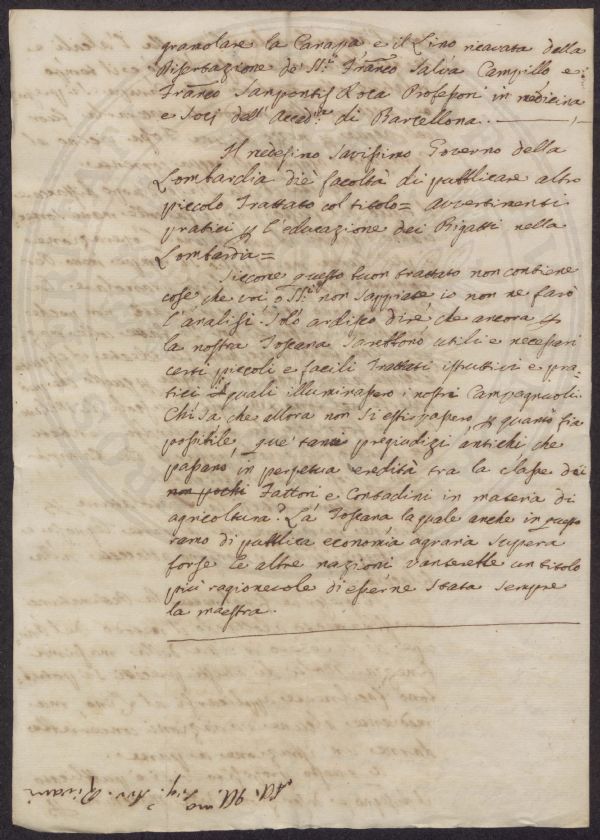 gramolare la Canapa, e il Lino ricavata della
Disertazione de SS.ri Franco Salva Campillo e
Franco Sanponts Roca Professori in medicina
e Soci dell'Accad.a di Barcellona.
Il medesimo Savissimo Governo della
Lombardia diè facoltà di pubblicare altro
piccolo Trattato col titolo = Avvertimenti
pratici p l'educazione dei Bigatti nella
Lombardia =
Siccome questo buon trattato non contiene
cose che voi o SS.ri non sappiate io non ne farò
l'analisi. Solo ardisco dire che ancora p
la nostra Toscana sarebbono utili e necessari
certi piccoli e facili Trattati istruttivi e pra-
tici i quali illuminassero i nostri Campagnuoli.
Chi sa che allora non si estirpassero, p quanto sia
possibile, que' tanti pregiudizi antichi che
passano in perpetua eredità tra la classe dei
non pochi Fattori e Contadini in materia di
agricoltura? La Toscana la quale anche in questo
ramo di pubblica economia agraria supera
forse le altre nazioni vanterebbe un titolo
più ragionevole di esserne stata sempre
la maestra.
All' Ill.mo Sig.e Avv.